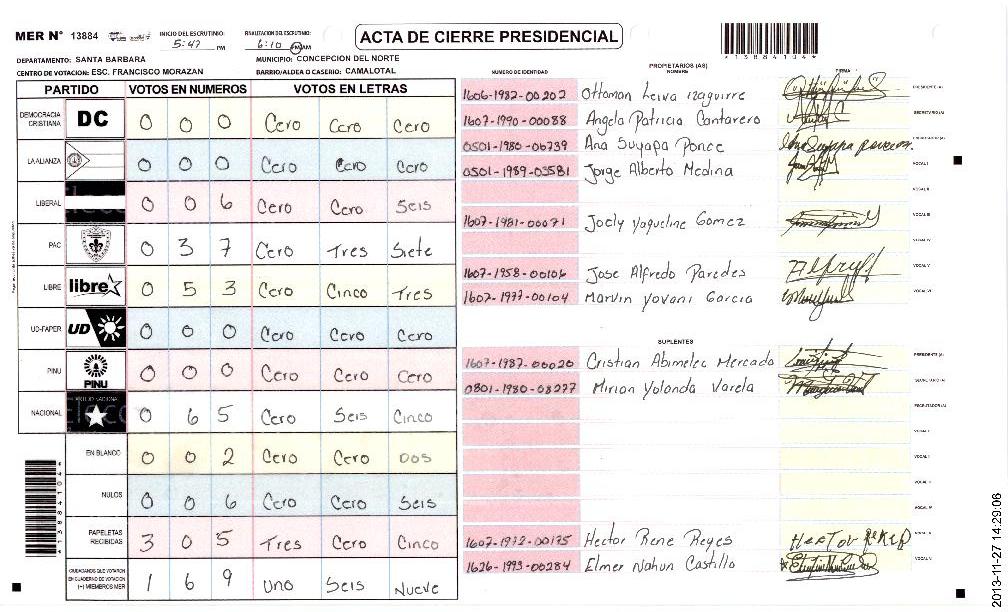 MER N° 13884
INICIO DEL ESCRUTINIO:
5:47 PM
FINALIZACION DEL ESCRUTINIO:
6:10 PM AM
ACTA DE CIERRE PRESIDENCIAL
*13884104*
DEPARTAMENTO: SANTA BARBARA
MUNICIPIO: CONCEPCION DEL NORTE
CENTRO DE VOTACION: ESC. FRANCISCO MORAZAN
BARRIO/ALDEA O CASERIO: CAMALOTAL
PARTIDO VOTOS EN NUMEROS VOTOS EN LETRAS
DEMOCRACIA CRISTIANA DC 0 0 0 Cero Cero Cero
LA ALIANZA 0 0 0 Cero Cero Cero
LIBERAL 0 0 6 Cero Cero Seis
PAC 0 3 7 Cero Tres Siete
LIBRE libre 0 5 3 Cero Cinco Tres
UD-FAPER UD 0 0 0 Cero Cero Cero
PINU PINU 0 0 0 Cero Cero Cero
NACIONAL 0 6 5 Cero Seis Cinco
EN BLANCO 0 0 2 Cero Cero Dos
NULOS 0 0 6 Cero Cero Seis
PAPELETAS RECIBIDAS 3 0 5 Tres Cero Cinco
CIUDADANOS QUE VOTARON EN CUADERNO DE VOTACION (+) MIEMBROS MER 1 6 9 Uno Seis Nueve
*13884104*
PROPIETARIOS (AS)
NUMERO DE IDENTIDAD NOMBRE FIRMA
1606-1982-00202 Ottoman Leiva Izaguirre PRESIDENTE (A)
1607-1990-00088 Angela Patricia Cantarero SECRETARIO (A)
0501-1980-06739 Ana Suyapa Ponce ESCRUTADOR (A)
0501-1989-03581 Jorge Alberto Medina VOCAL I
VOCAL II
1607-1981-00071 Joely Yaqueline Gomez VOCAL III
VOCAL IV
1607-1958-00106 Jose Alfredo Paredes VOCAL V
1607-1977-00104 Marvin Yovani Garcia VOCAL VI
SUPLENTES
1607-1987-00020 Cristian Abimelec Mercado PRESIDENTE (A)
0801-1980-08277 Mirian Yolonda Varela SECRETARIO (A)
ESCRUTADOR (A)
VOCAL I
1607-1972-00175 Hector Rene Reyes
1626-1993-00284 Elmer Nahun Castillo
2013-11-27 14:29:06